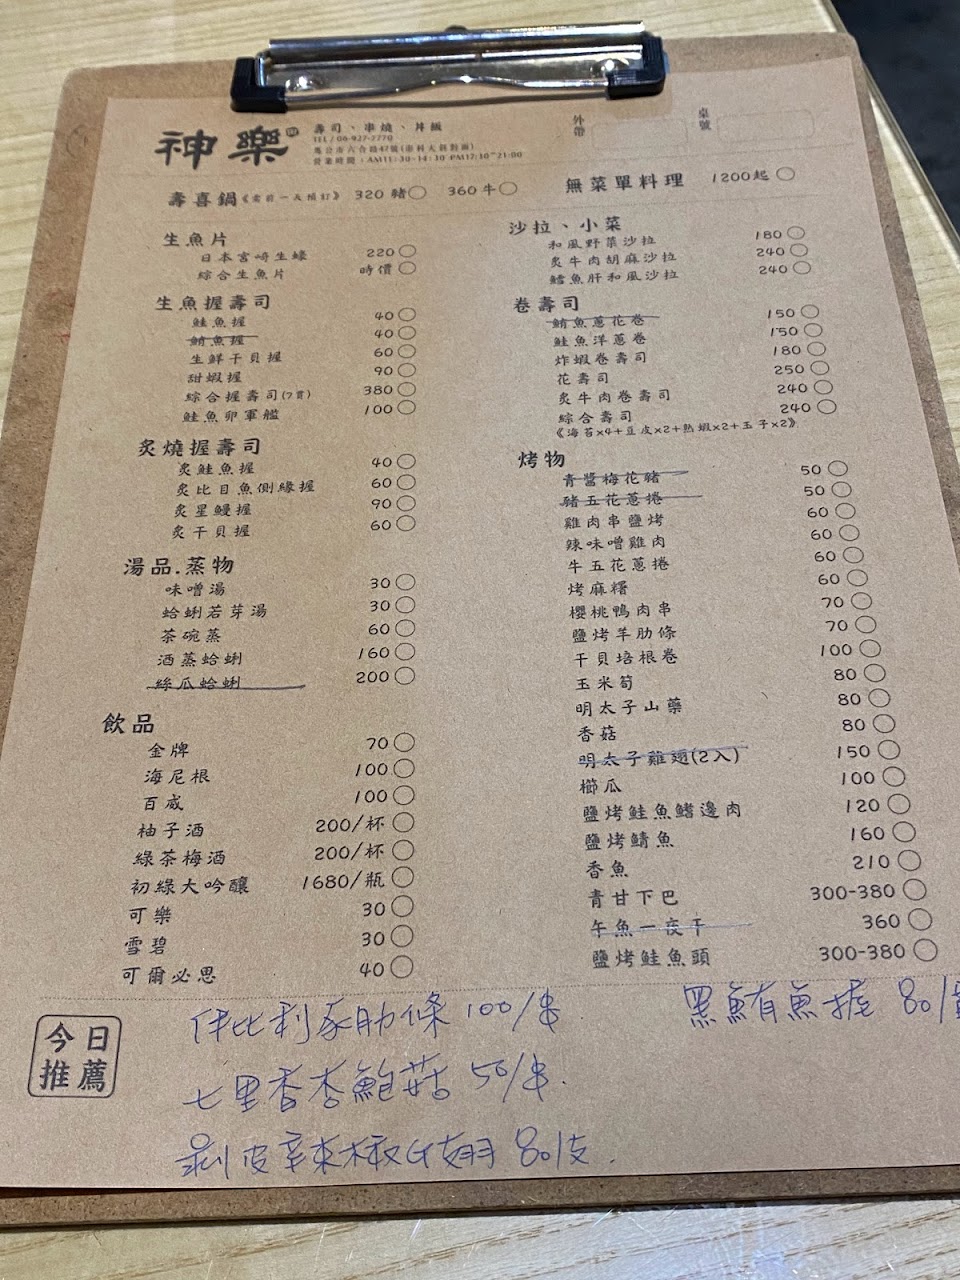 神樂
壽司、串燒、丼飯
TEL / 06-927-2770
馬公市六合路47號(澎科大斜對面)
營業時間:AM11:30-14:30 PM17:10~21:00
外帶
桌號
壽喜鍋《需前一天預訂》 320 豬○ 360 牛○
無菜單料理 1200起 ○
生魚片
日本宮崎生蠔 220 ○
綜合生魚片 時價 ○
生魚握壽司
鮭魚握 40 ○
鮪魚握 40 ○
生鮮干貝握 60 ○
甜蝦握 90 ○
綜合握壽司(7貫) 380 ○
鮭魚卵軍艦 100 ○
炙燒握壽司
炙鮭魚握 40 ○
炙比目魚側緣握 60 ○
炙星鰻握 90 ○
炙干貝握 60 ○
湯品.蒸物
味噌湯 30 ○
蛤蜊若芽湯 30 ○
茶碗蒸 60 ○
酒蒸蛤蜊 160 ○
絲瓜蛤蜊 200 ○
飲品
金牌 70 ○
海尼根 100 ○
百威 100 ○
柚子酒 200/杯 ○
綠茶梅酒 200/杯 ○
初綠大吟釀 1680/瓶 ○
可樂 30 ○
雪碧 30 ○
可爾必思 40 ○
沙拉、小菜
和風野菜沙拉 180 ○
炙牛肉胡麻沙拉 240 ○
鱈魚肝和風沙拉 240 ○
卷壽司
鮪魚蔥花卷 150 ○
鮭魚洋蔥卷 150 ○
炸蝦卷壽司 180 ○
花壽司 250 ○
炙牛肉卷壽司 240 ○
綜合壽司 240 ○
《海苔x4+豆皮x2+熟蝦x2+玉子x2》
烤物
青醬梅花豬 50 ○
豬五花蔥捲 50 ○
雞肉串鹽烤 60 ○
辣味噌雞肉 60 ○
牛五花蔥捲 60 ○
烤麻糬 60 ○
櫻桃鴨肉串 70 ○
鹽烤羊肋條 70 ○
干貝培根卷 100 ○
玉米筍 80 ○
明太子山藥 80 ○
香菇 80 ○
明太子雞翅(2入) 150 ○
櫛瓜 100 ○
鹽烤鮭魚鰭邊肉 120 ○
鹽烤鯖魚 160 ○
香魚 210 ○
青甘下巴 300-380 ○
午魚一夜干 360 ○
鹽烤鮭魚頭 300-380 ○
今日推薦
伊比利豕肋條 100/串
七里香杏鮑菇 50/串.
剝皮辣椒雞翅 80/支.
黑鮪魚握 80/貫